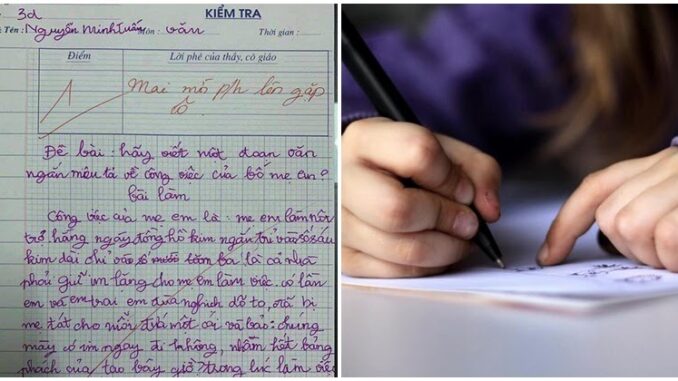 3d KIỂM TRA
Tên: Nguyễn Minh Tuấn Môn: văn Thời gian:
Điểm Lời phê của thầy, cô giáo
1 Mai mó p/h lên gặp
cô
Đề bài: hãy viết một đoạn văn
ngắn miêu tả về công việc của bố mẹ em?
bài làm
Công việc của mẹ em là: mẹ em làm
trở hằng ngày đồng hồ kim ngắn chỉ vào số sáu
kim dài chỉ vào số ba là cả nhà
phải giữ im lặng cho mẹ em làm việc. có lần
em và em trai em đùa nghịch dỗ to, đã bị
mẹ tát cho mỗi đứa một cái và bảo: chúng
mày có im ngay đi không, nhầm hết bảng
phách của tao bây giờ? trong lúc làm việc